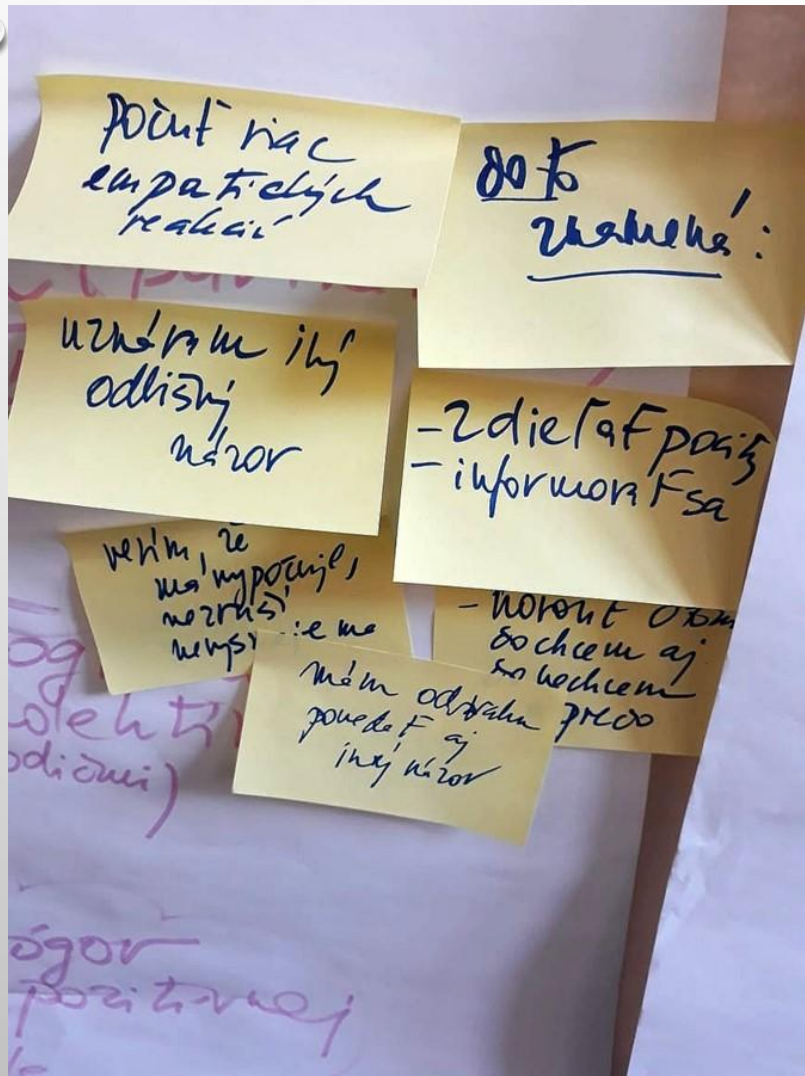 počuť viac
empatických
reakcií
čo to
znamená:
uznávam iný
odlišný
názor
-zdieľať pocity
-informovať sa
verím, že
ma vypočuje,
nezruší
- hovoriť o tom
čo chcem aj
čo nechcem
prečo
mám odvahu
povedať aj
iný názor
pozitívnej